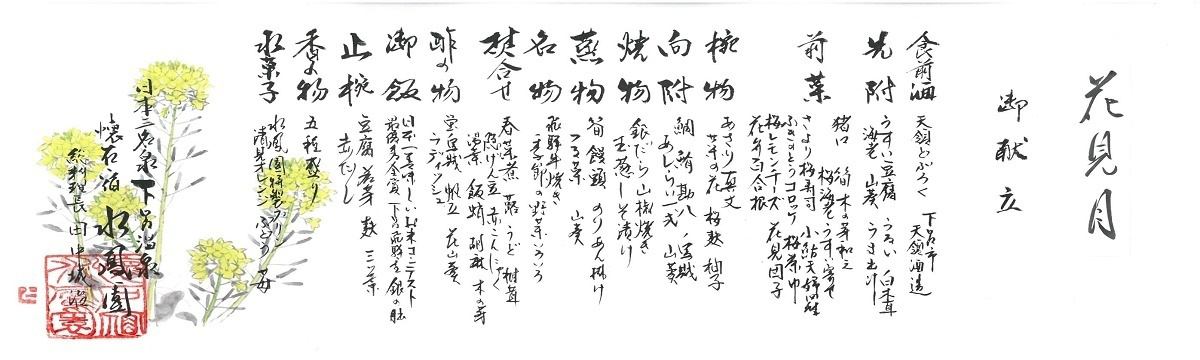 花見月
御献立
食前酒 天領どぶろく 下呂市 天領酒造
先附 うすい豆腐 うるい 白木茸
海老 山葵 うま出汁
前菜 猪口 筍木の芽和え
さより梅寿司 梅海老うすい寄せ
ふきのとうコロッケ 小鮎天婦羅
梅レモンチーズ 梅茶巾
花弁百合根 花見団子
椀物 あさり真丈
芽牛の花 桜麩 柚子
向附 鯛 鮪 勘八 烏賊
あしらい一式 山葵
焼物 銀だら山椒焼き
玉葱しそ漬け
蒸物 筍饅頭 のりあん掛け
つる菜 山葵
名物 飛騨牛焼き
季節の野菜いろいろ
焚合せ 春野菜 蕗 うど 椎茸
湯葉 飯蛸 木の芽
酢の物 蛍烏賊 帆立 花山葵
ラディッシュ
御飯 日本一美味しいお米コンテスト
最優秀金賞 下呂市 龍の瞳
止椀 豆腐 若芽 麩 三つ葉
赤だし
香の物 五種盛り
水菓子 水鳳園特製プリン
清見オレンジ ぶどう 苺
日本三名泉 下呂温泉
懐石宿 水鳳園
総料理長 田中